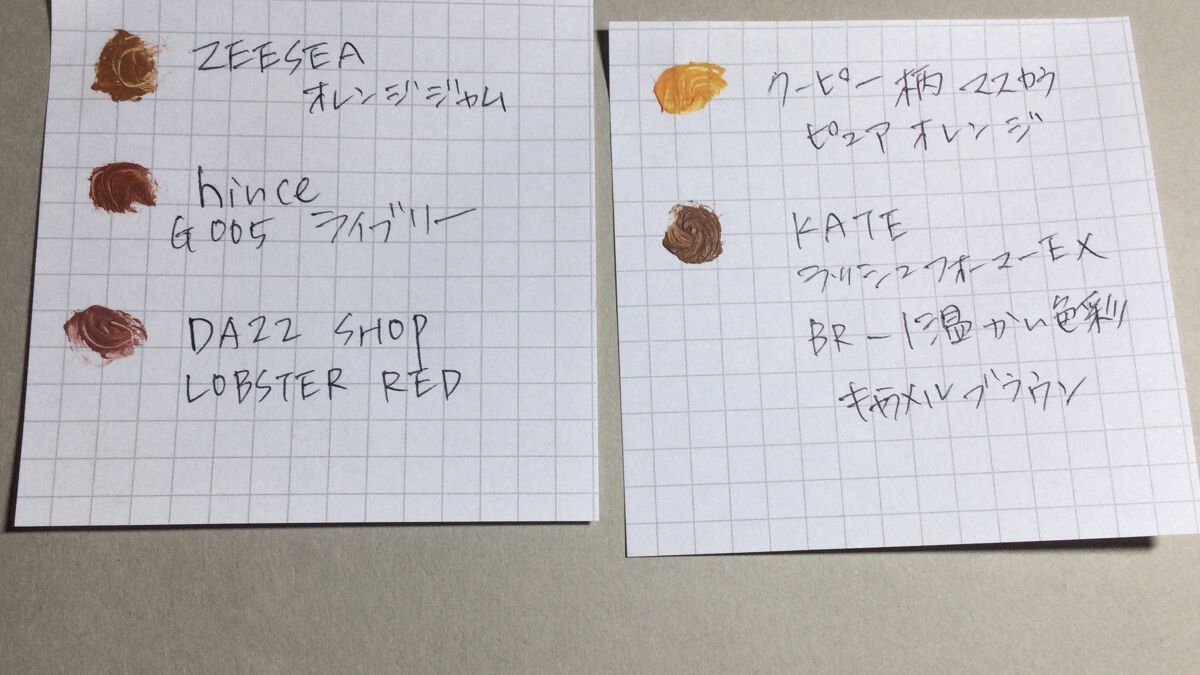 ZEESEA
オレンジジャム
hince
G005 ライブリー
DAZZ SHOP
LOBSTER RED
クーピー柄 マスカラ
ピュア オレンジ
KATE
ラッシュフォーマーEX
BR-1 温かい色彩
キャラメルブラウン